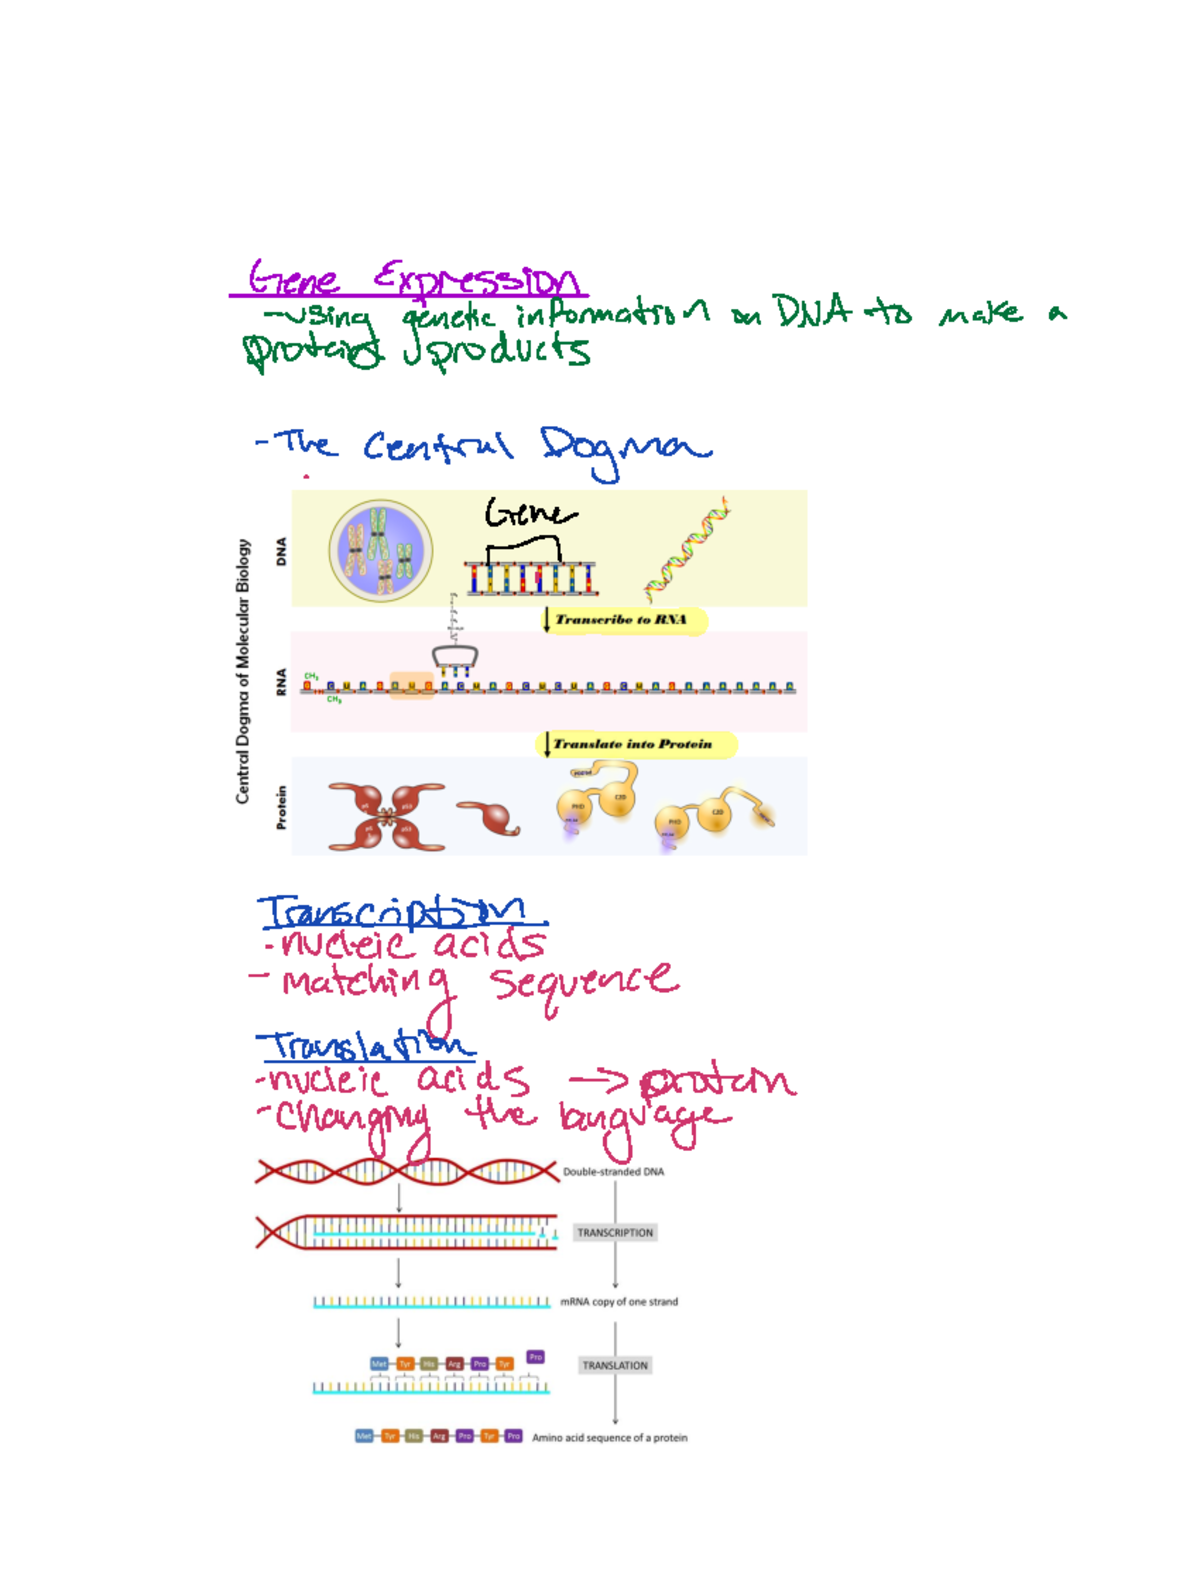 Gene Expression
-using genetic information on DNA to make a
products
-The Central Dogma
Central Dogma of Molecular Biology
DNA
Gene
Transcribe to RNA
RNA
CH₃
CH₃
Translate into Protein
Protein
PHD
CZD
PHD
CZD
Transcription
-nucleic acids
- matching sequence
Translation
-nucleic acids → protein
-changing the language
Double-stranded DNA
TRANSCRIPTION
mRNA copy of one strand
Met Tyr His Arg Pro Tyr Pro
TRANSLATION
Met Tyr His Arg Pro Tyr Pro Amino acid sequence of a protein